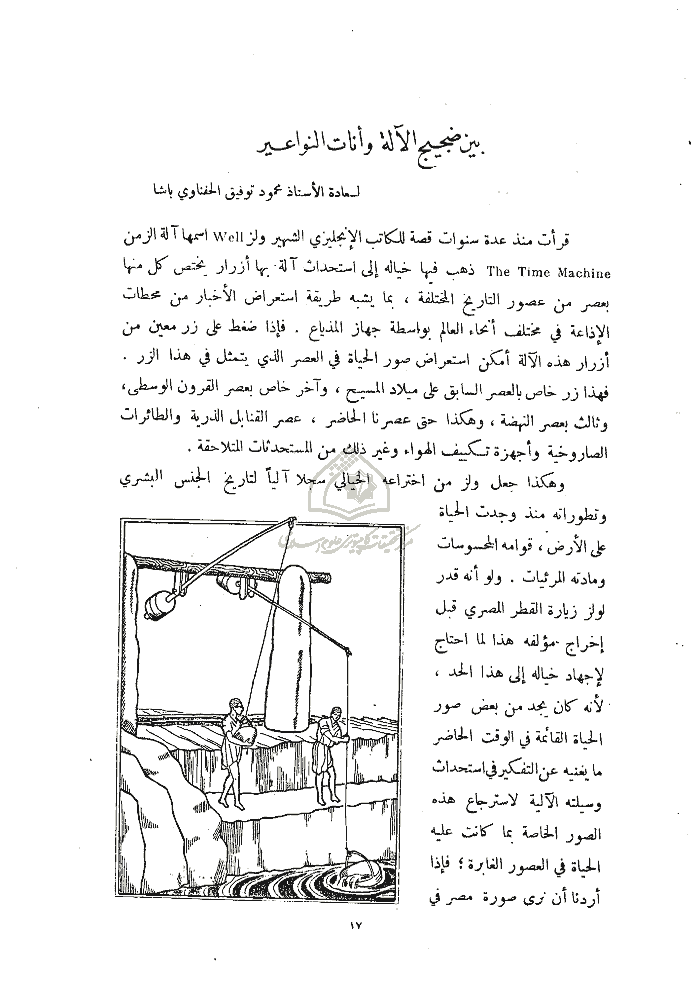 بين ضجيج الآلة وأنات النواعير
لسعادة الأستاذ محمود توفيق الحفناوي باشا
قرأت منذ عدة سنوات قصة للكاتب الإنجليزي الشهير ولز Well اسمها آلة الزمن
The Time Machine ذهب فيها خياله إلى استحداث آلة بها أزرار يختص كل منها
بعصر من عصور التاريخ المختلفة ، بما يشبه طريقة استعراض الأخبار من محطات
الإذاعة في مختلف أنحاء العالم بواسطة جهاز المذياع . فإذا ضغط على زر معين من
أزرار هذه الآلة أمكن استعراض صور الحياة في العصر الذي يتمثل في هذا الزر .
فهذا زر خاص بالعصر السابق على ميلاد المسيح ، وآخر خاص بعصر القرون الوسطى،
وثالث بعصر النهضة ، وهكذا حتى عصرنا الحاضر ، عصر القنابل الذرية والطائرات
الصاروخية وأجهزة تكييف الهواء وغير ذلك من المستحدثات المتلاحقة .
وهكذا جعل ولز من اختراعه الخيالي سجلا آلياً لتاريخ الجنس البشري
وتطوراته منذ وجدت الحياة
على الأرض ، قوامه المحسوسات
ومادته المرئيات . ولو أنه قدر
لولز زيارة القطر المصري قبل
إخراج مؤلفه هذا لما احتاج
لإجهاد خياله إلى هذا الحد ،
لأنه كان يجد من بعض صور
الحياة القائمة في الوقت الحاضر
ما يغنيه عن التفكير في استحداث
وسيلته الآلية لاسترجاع هذه
الصور الخاصة بما كانت عليه
الحياة في العصور الغابرة ؛ فإذا
أردنا أن نرى صورة مصر في
١٧